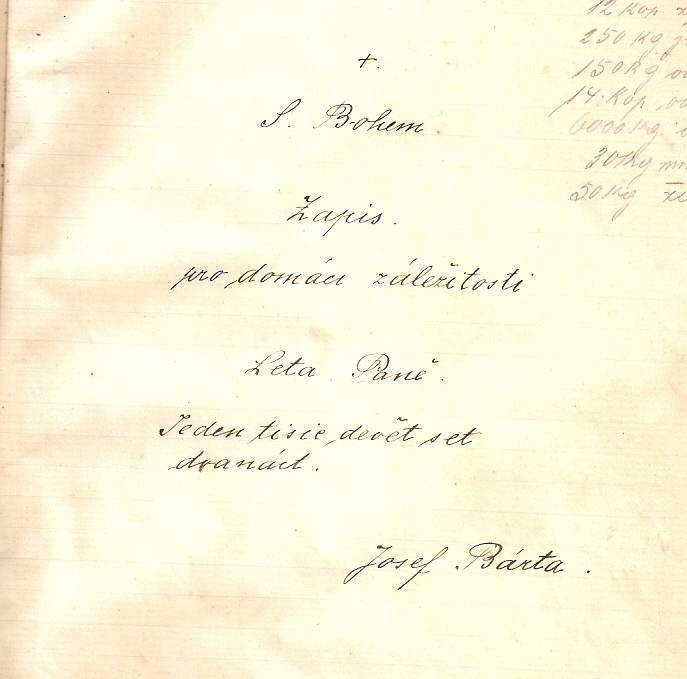 +.
S. Bohem
Zapis.
pro domácí záležitosti
Leta Paně.
Jeden tisic devět set
dvanáct.
Josef Bárta.
12 kop
250 kg
150 kg
14. kop
6000 kg
30 kg
50 kg